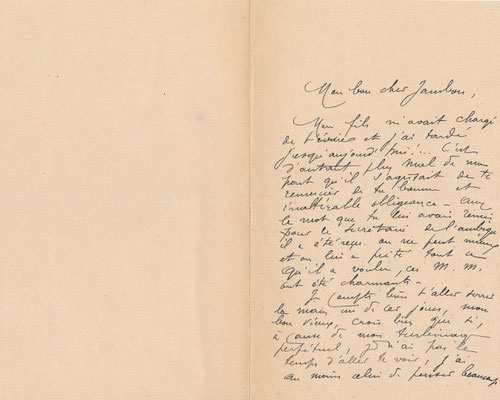 Mon bon cher Jambon,
Mon fils m'avait chargé
de t'écrire et j'ai tardé
jusqu'aujourd'hui!... C'est
d'autant plus mal de ma
part qu'il s'agissait de te
remercier de ta bonne et
inaltérable obligeance - avec
le mot que tu lui avais remis
pour le secrétaire de l'ambigu
il a été reçu on ne peut mieux
et on lui a prêté tout ce
qu'il a voulu, ces M. M.
ont été charmants -
Je compte bien t'aller serrer
la main un de ces jours, mon
bon vieux, crois bien que si,
à cause de mon
perpétuel, je n'ai pas le
temps d'aller te voir, j'ai
au moins celui de penser beaucoup